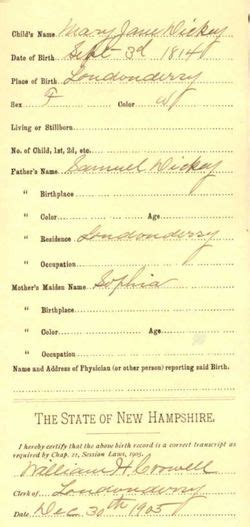 Child's Name Mary Jane Dickey
Date of Birth Sept 3d 1814
Place of Birth Londonderry
Sex F Color W
Living or Stillborn
No. of Child, 1st, 2d, etc.
Father's Name Samuel Dickey
" Birthplace
" Color Age
" Residence Londonderry
" Occupation
Mother's Maiden Name Sophia
" Birthplace
" Color Age
" Occupation
Name and Address of Physician (or other person) reporting said Birth.
THE STATE OF NEW HAMPSHIRE.
I hereby certify that the above birth record is a correct transcript as
required by Chap. 21, Session Laws, 1905.
William H. Crowell
Clerk of Londonderry
Date Dec 30th 1905